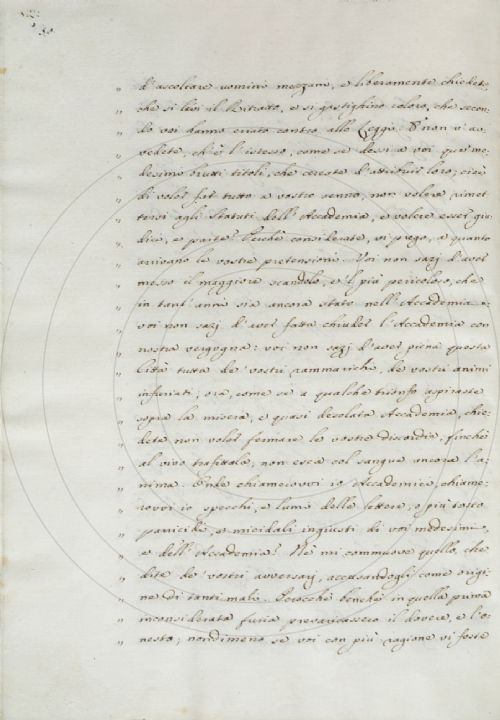 " d'ascoltare uomini mezzani, e liberamente chiedete,
" che si levi il Ritratto, e si gastighino coloro, che secon-
" do voi hanno errato contro alle Leggi. E non vi av-
" vedete, ch'è l'istesso, come se dessi a voi que' me-
" desimi brutti titoli, che cercate d'attribuir loro; cioè
" di voler far tutto a vostro senno, non volere rimet-
" tervi agli Statuti dell'Accademia, e volere esser giu-
" dice, e parte? Perchè considerate, vi priego, a quanto
" arrivano le vostre pretensioni. Voi non sazj d'aver
" messo il maggiore scandolo, e 'l più pericoloso, che
" in tant' anni sia ancora stato nell'Accademia:
" voi non sazj d'aver fatta chiuder l'Accademia con
" nostra vergogna: voi non sazj d'aver piena questa
" Città tutta de' vostri rammarichi, de' vostri animi
" infuriati; ora, come se a qualche trionfo aspiraste
" sopra la misera, e quasi desolata Accademia, chie-
" dete non voler fermare le vostre discordie, finchè
" al vivo trafittala, non esca col sangue ancora l'a-
" nima. Onde chiamerovvi io Accademici, chiame-
" rovvi io specchi, e lumi delle lettere, o più tosto
" parricidi, e micidiali ingiusti di voi medesimi,
" e dell'Accademia? Nè mi commuove quello, che
" dite de' vostri avversarj, accusandogli come origi-
" ne di tanti mali. Perocchè benchè in quella prima
" inconsiderata furia prevaricassero il dovere, e l'o-
" nesto; nondimeno se voi con più ragione vi foste